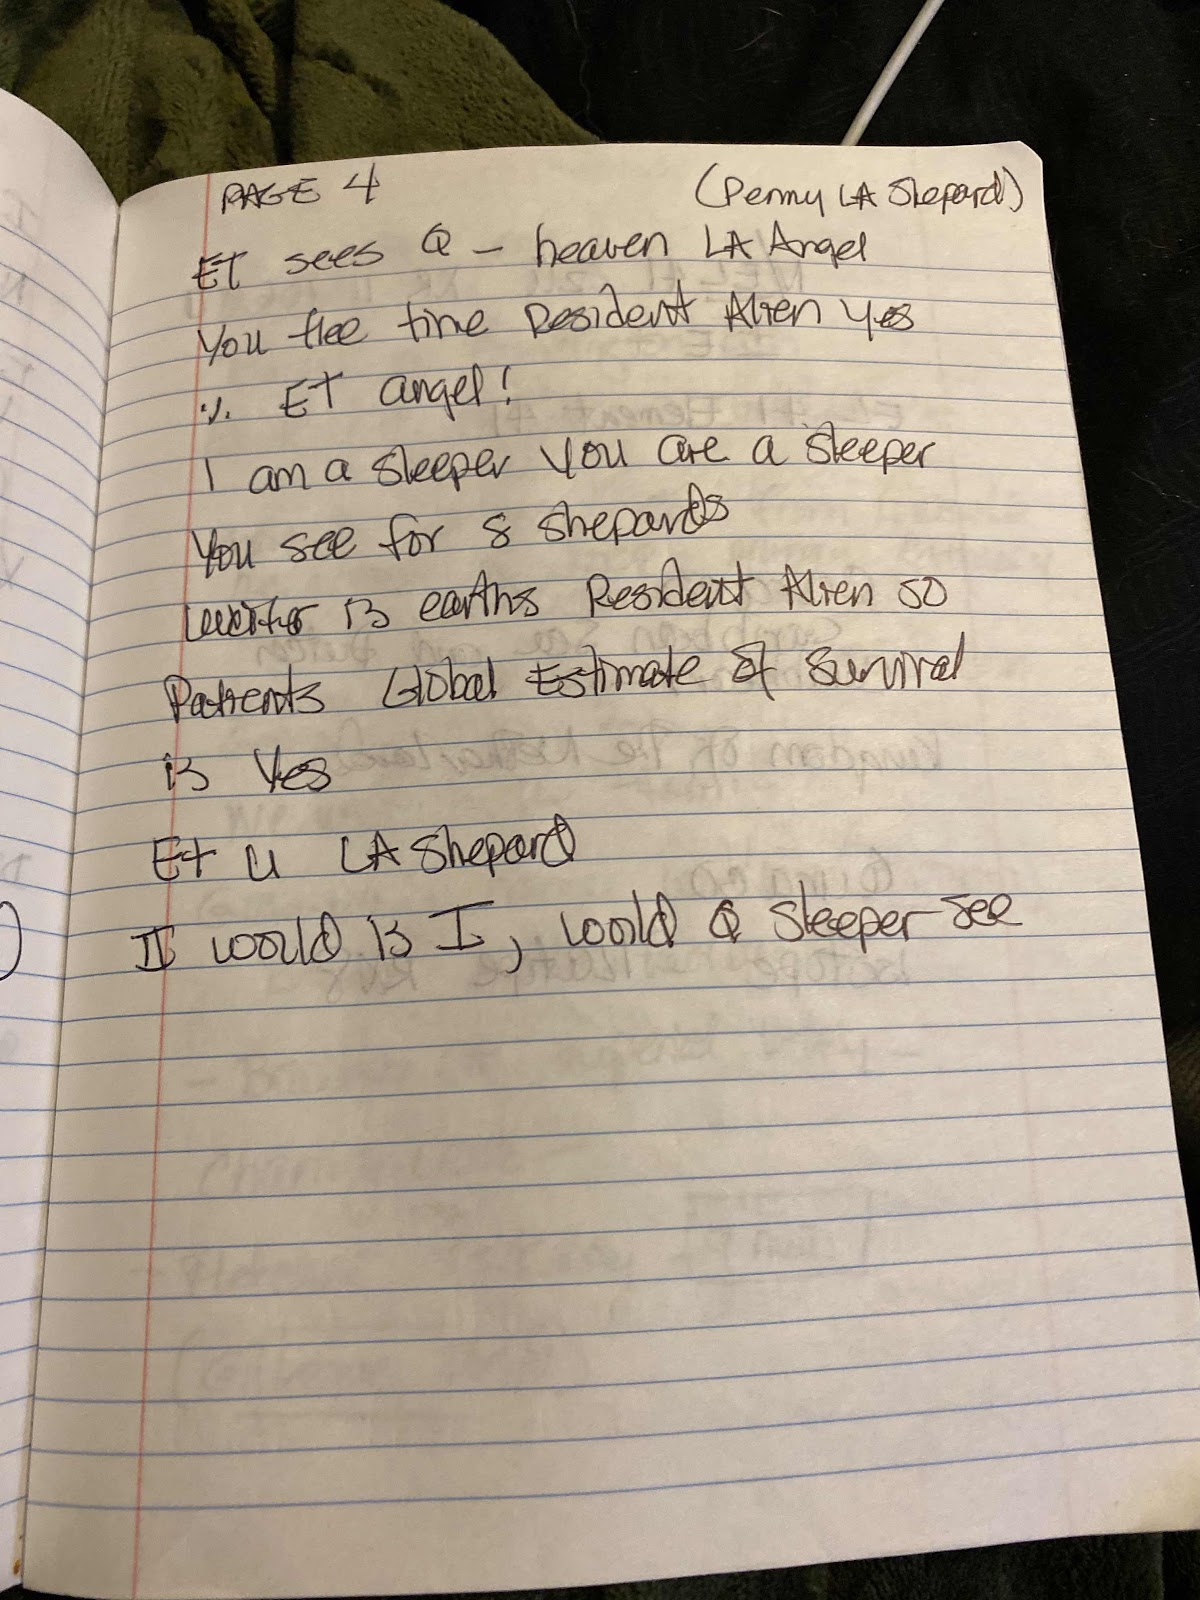 PAGE 4 (Penny LA Shepard)
ET sees Q - heaven LA Angel
You flee time Resident Alien yes
ET angel!
I am a sleeper you are a sleeper
You see for 8 shepards
writer is earths Resident Alien so
Patients Global Estimate of Survival
is Yes
Et u LA Shepard
II world is I, world Q sleeper see